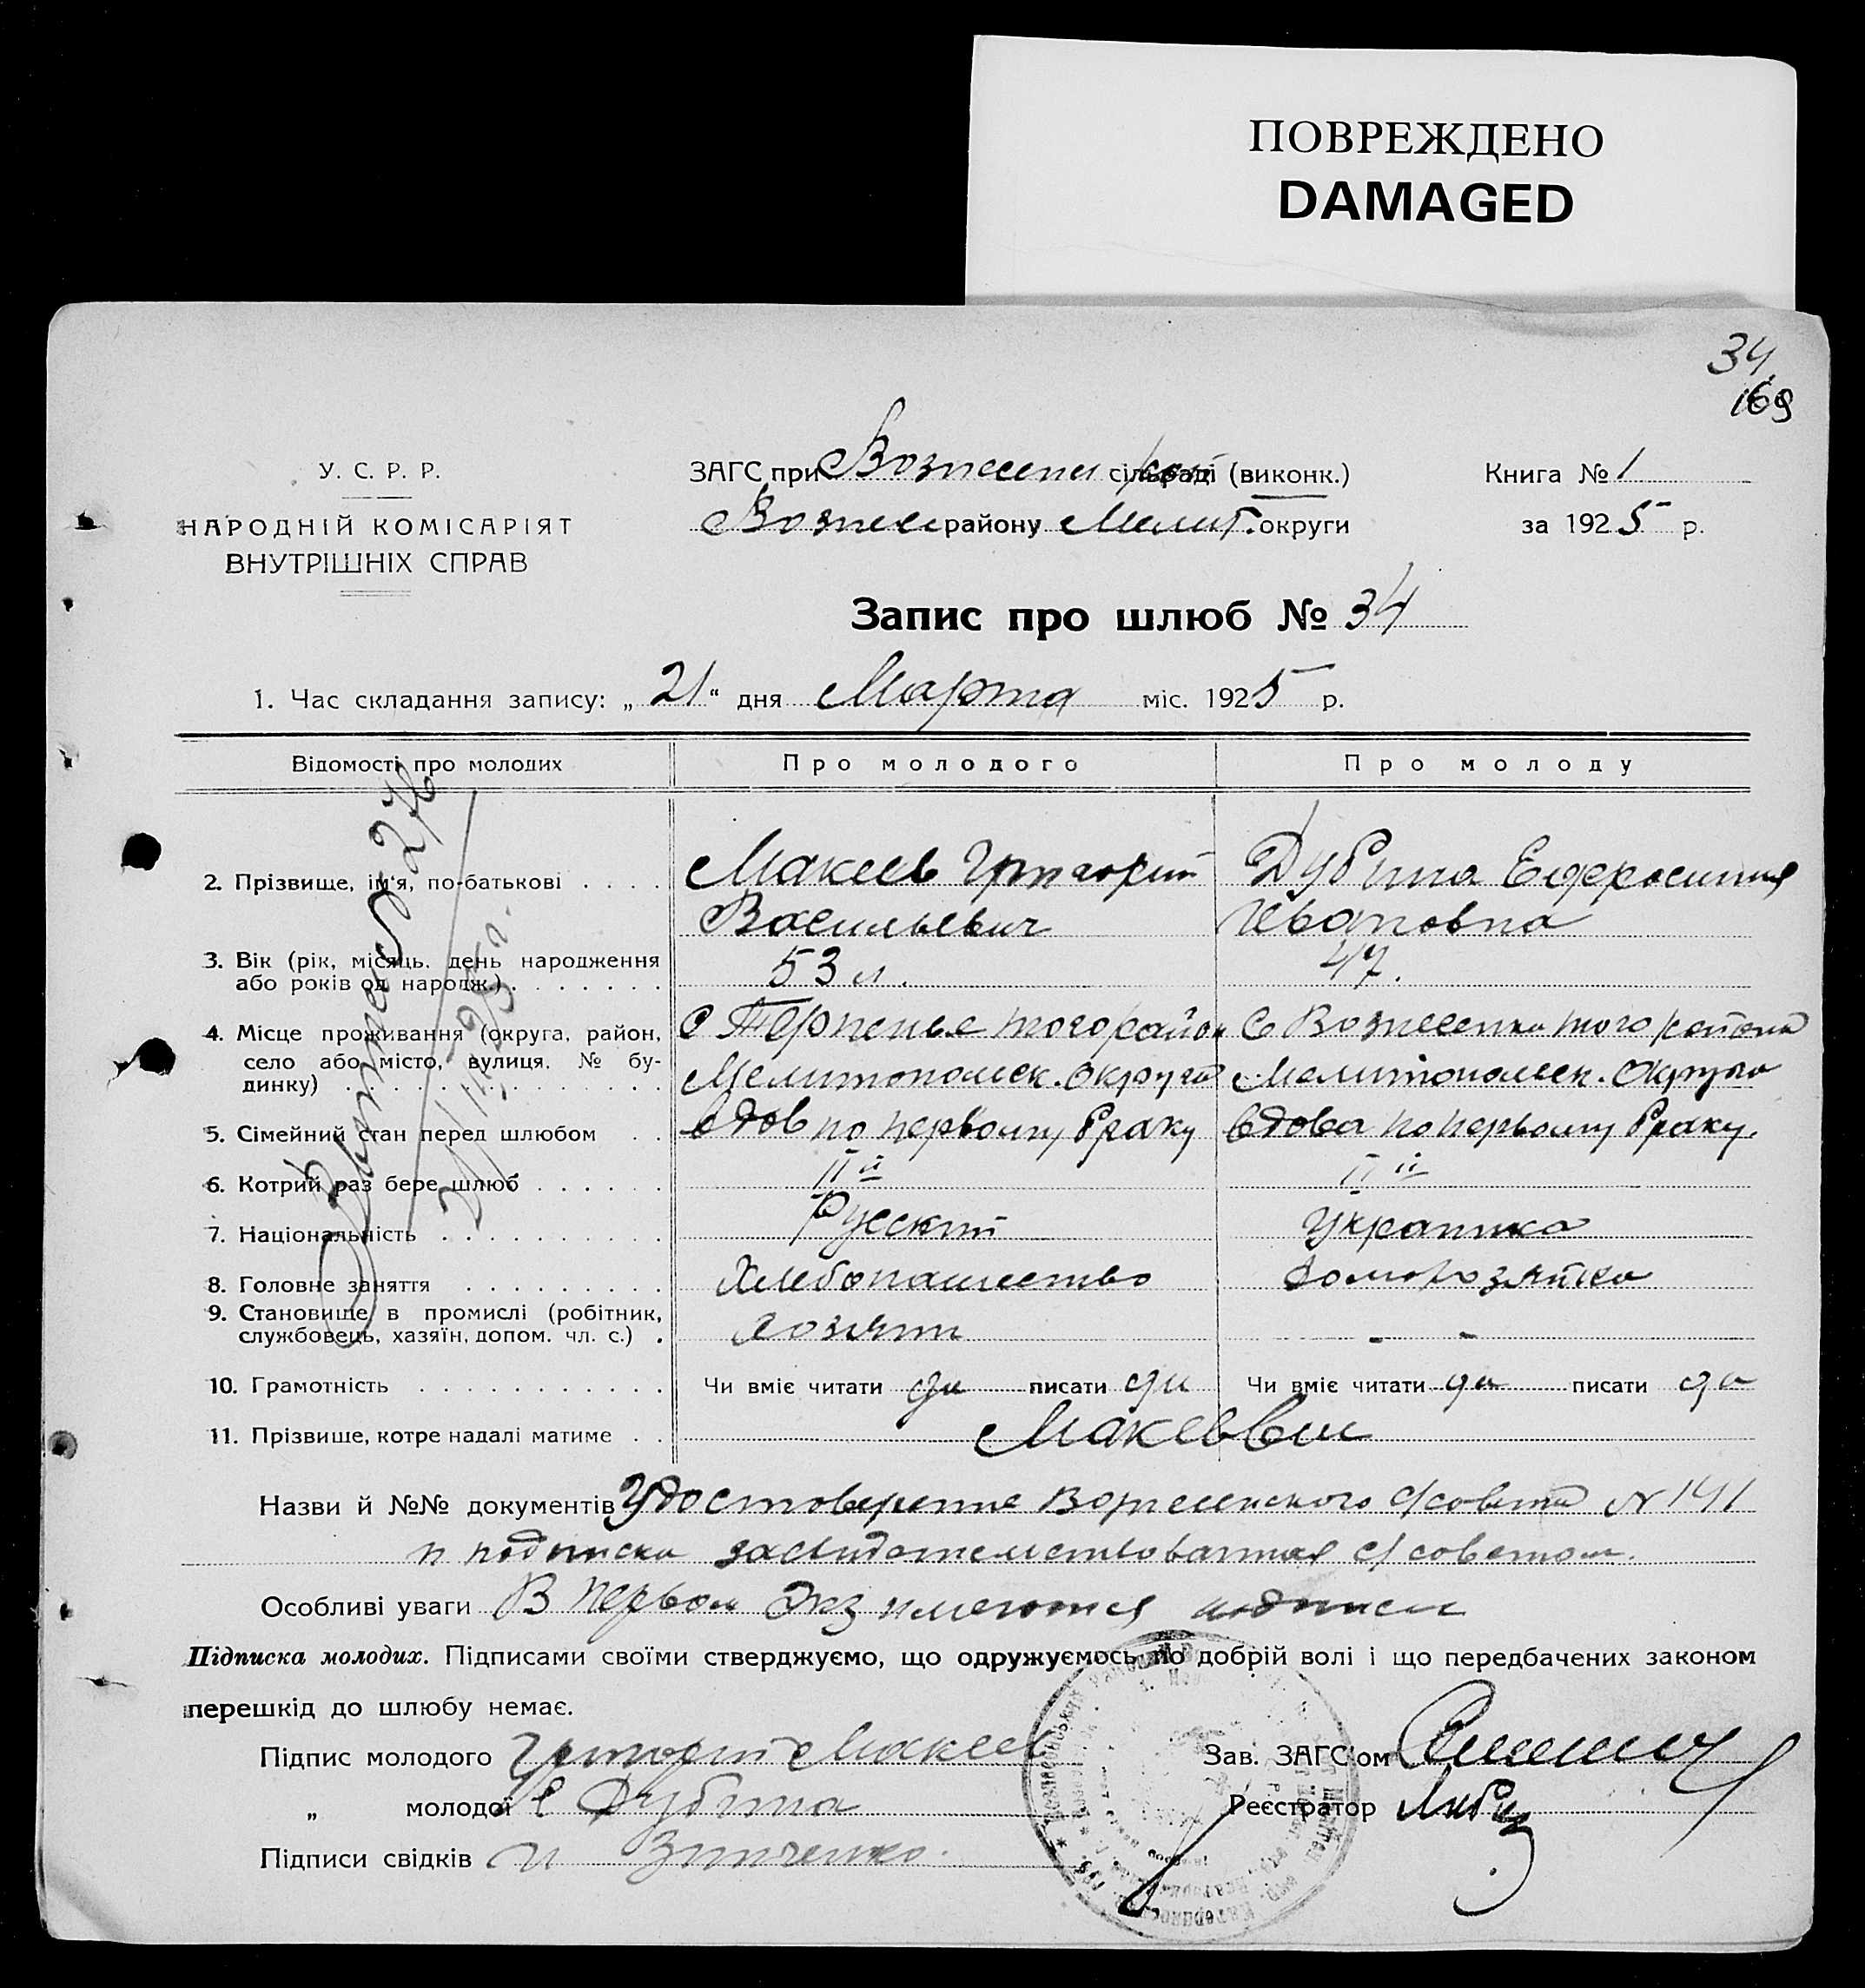 ПОВРЕЖДЕНО
DAMAGED
34
169
У. С. Р. Р.
НАРОДНІЙ КОМІСАРІЯТ
ВНУТРІШНІХ СПРАВ
ЗАГС при Вознесенск рай сільраді (виконк.)
Вознес району Мелит. округи
Книга № 1
за 1925 р.
Запис про шлюб № 34
1. Час складання запису: „ 21 “ дня Марта міс. 1925 р.
Відомості про молодих
Про молодого
Про молоду
2. Прізвище, ім'я, по-батькові . . . .
Макеев Григорий
Васильевич
Дубина Ефросиния
Ивановна
3. Вік (рік, місяць, день народження
або років од народж.) . . . . . . .
53 л.
47.
4. Місце проживання (округа, район,
село або місто, вулиця, № бу-
динку) . . . . . . . . . . . . . .
С Терпенье того район
Мелитопольск. округа
С Вознесенка того района
Мелитопольск. Округа
5. Сімейний стан перед шлюбом . .
вдов по первому браку
вдова по первому браку.
6. Котрий раз бере шлюб . . . . . .
IIй
IIй
7. Національність . . . . . . . . . .
Русский
Украинка
8. Головне заняття . . . . . . . . .
Хлебопашество
домохозяйка
9. Становище в промислі (робітник,
службовець, хазяїн, допом. чл. с.) .
хозяин
- -
10. Грамотність . . . . . . . . . . .
Чи вміє читати да писати да
Чи вміє читати да писати да
11. Прізвище, котре надалі матиме . .
Макеевы
Назви й №№ документів Удостоверение Вознесенского с/совета № 141
и подписка засвидетельствованная с/советом.
Особливі уваги В первом Экз имеются подписи
Підписка молодих. Підписами своїми стверджуємо, що одружуємось по добрій волі і що передбачених законом
перешкід до шлюбу немає.
Підпис молодого Григорий Макеев
„ молодої Е Дубина
Підписи свідків И Зинченко.
Зав. ЗАГС'ом
Реєстратор